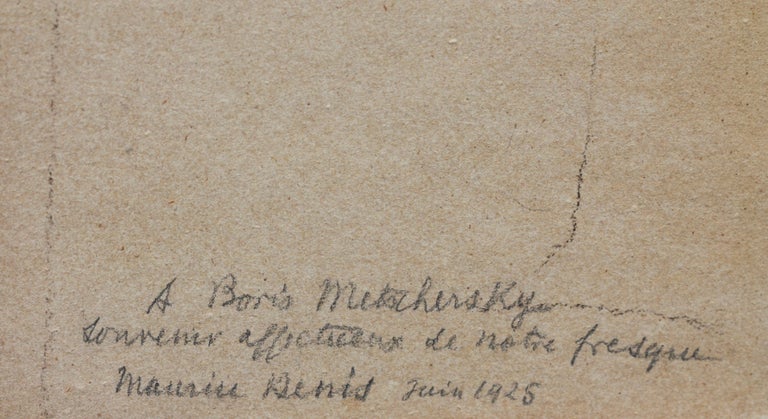 A Boris Metschersky
souvenir affectueux de notre fresque
Maurice Denis Juin 1925